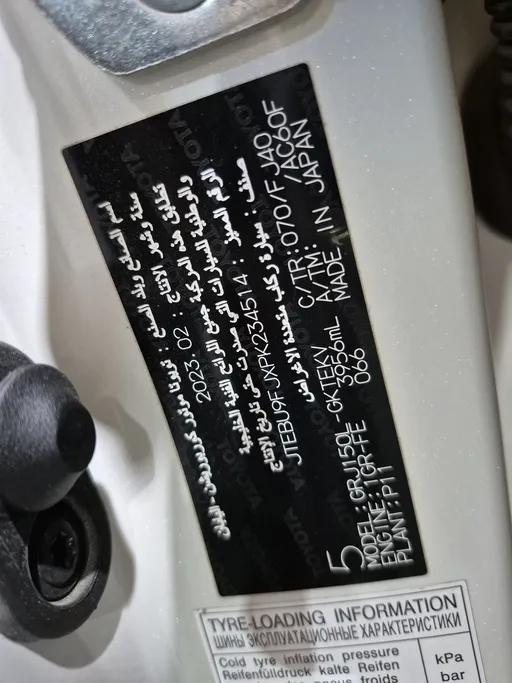 اسم المصنع وبلد الصنع : تويوتا موتور كوربوريشن - اليابان
سنة وشهر الانتاج : 2023. 02
تطابق هذه المركبة جميع اللوائح الفنية الخليجية
والوطنية للسيارات التي صدرت حتى تاريخ الإنتاج
الرقم المميز : JTEBU9FJXPK234514
صنف : سيارة ركاب متعددة الاغراض
5
MODEL:GRJ150L-GKTEKV C/TR:070/FJ40
ENGINE:1GR-FE 3956mL A/TM: /AC60F
PLANT:P11 066 MADE IN JAPAN
TYRE-LOADING INFORMATION
ШИНЫ ЭКСПЛУАТАЦИОННЫЕ ХАРАКТЕРИСТИКИ
Cold tyre inflation pressure kPa
Reifenfülldruck kalte Reifen bar
pneus froids